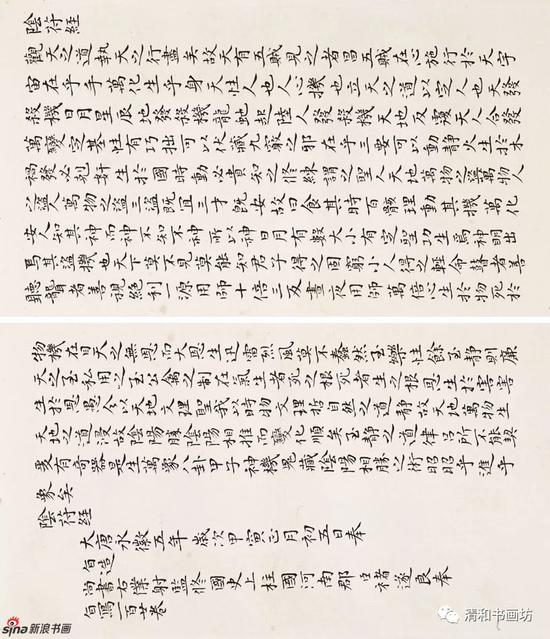 陰符经
觀天之道執天之行盡矣故天有五賊見之者昌五賊在心施行於天宇
宙在乎手萬化生乎身天性人也人心機也立天之道以定人也天發
殺機日月星辰地發殺機龍虵起陸人發殺機天地反覆天人合發
萬變定基性有巧拙可以伏藏九竅之邪在乎三要可以動静火生於木
禍發必剋奸生於國時動必潰知之修練謂之聖人天地萬物之盜萬物人
之盜人萬物之盜三盜既宜三才既安故曰食其時百骸理動其機萬化
安人知其神而神不知不神所以神日月有數大小有定聖功生焉神明出
焉其盜機也天下莫不見莫能知君子得之固窮小人得之輕命瞽者善
聽聾者善視絶利一源用師十倍三反晝夜用師萬倍心生於物死於
物機在目天之無恩而大恩生迅雷烈風莫不蠢然至樂性餘至静則廉
天之至私用之至公禽之制在氣生者死之根死者生之根恩生於害害
生於恩愚人以天地文理聖我以時物文理哲自然之道静故天地萬物生
天地之道浸故陰陽勝陰陽相推而變化順矣至静之道律吕所不能契
爰有奇器是生萬象八卦甲子神機鬼藏陰陽相勝之術昭昭乎進乎
象矣
陰符经
大唐永徽五年歲次甲寅正月初五日奉
旨造
尚書右僕射監修國史上柱國河南郡臣褚遂良奉
旨寫一百廿卷
sina 新浪书画
清和书画坊